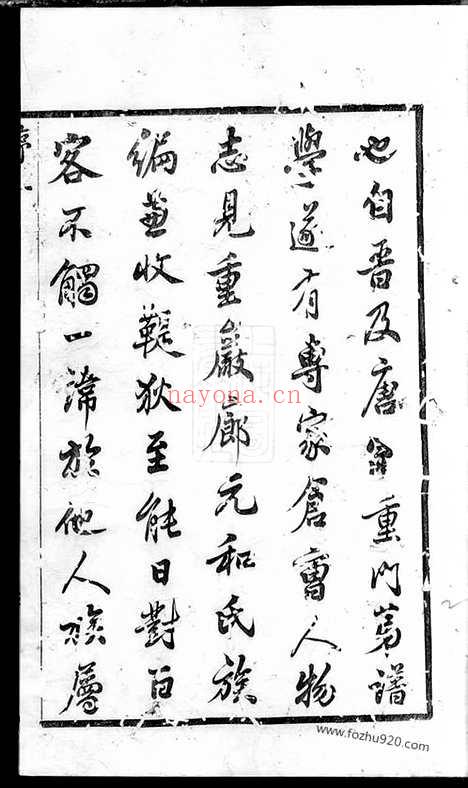 也自晉及唐穿重門第譜
學遂有專家倉曹人物
志見重巖廊元和氏族
編兼收鞮狄至能日對百
客不觸一諱於他人族屬
序
nayona.cn
www.fozhu920.com